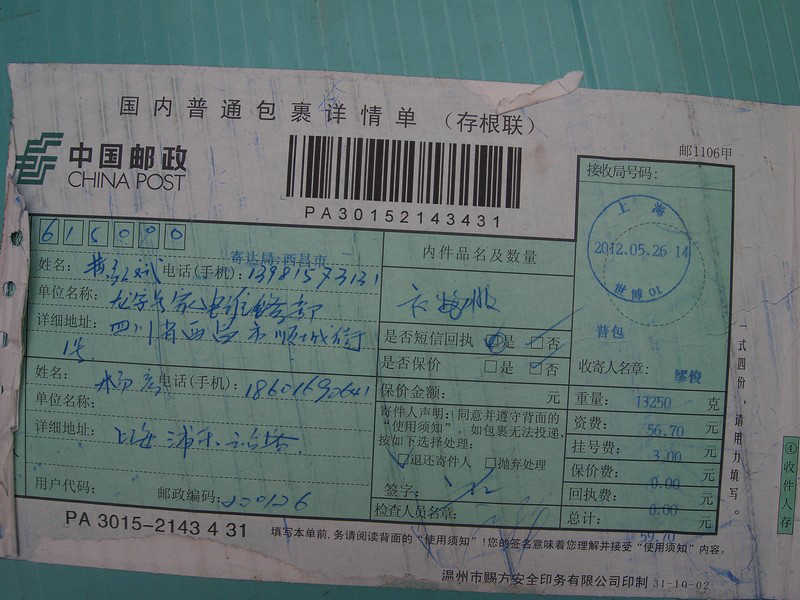 国内普通包裹详情单(存根联)
中国邮政
CHINA POST
PA30152143431
邮1106甲
接收局号码:
上海
2012.05.26 14
世博 01
背包
收寄人名章: 缪俊
615000
寄达局:西昌市
姓名: 电话(手机): 13981573131
单位名称:
详细地址: 四川省西昌市顺城街
1号
内件品名及数量
是否短信回执 是 否
是否保价 是 否
保价金额: 元
寄件人声明:同意并遵守背面的
“使用须知”,如包裹无法投递,
按如下选择处理:
退还寄件人 抛弃处理
签字:
检查人员名章:
姓名: 电话(手机): 18601690641
单位名称:
详细地址: 上海浦东
用户代码: 邮政编码: 200126
重量: 13250 克
资费: 56.70 元
挂号费: 3.00 元
保价费: 0.00 元
回执费: 0.00 元
总计: 59.70 元
一式四份,请用力填写。
④收件人存
PA 3015-2143 4 31
填写本单前,务请阅读背面的“使用须知”!您的签名意味着您理解并接受“使用须知”内容。
温州市赐方安全印务有限公司印制 31-10-02